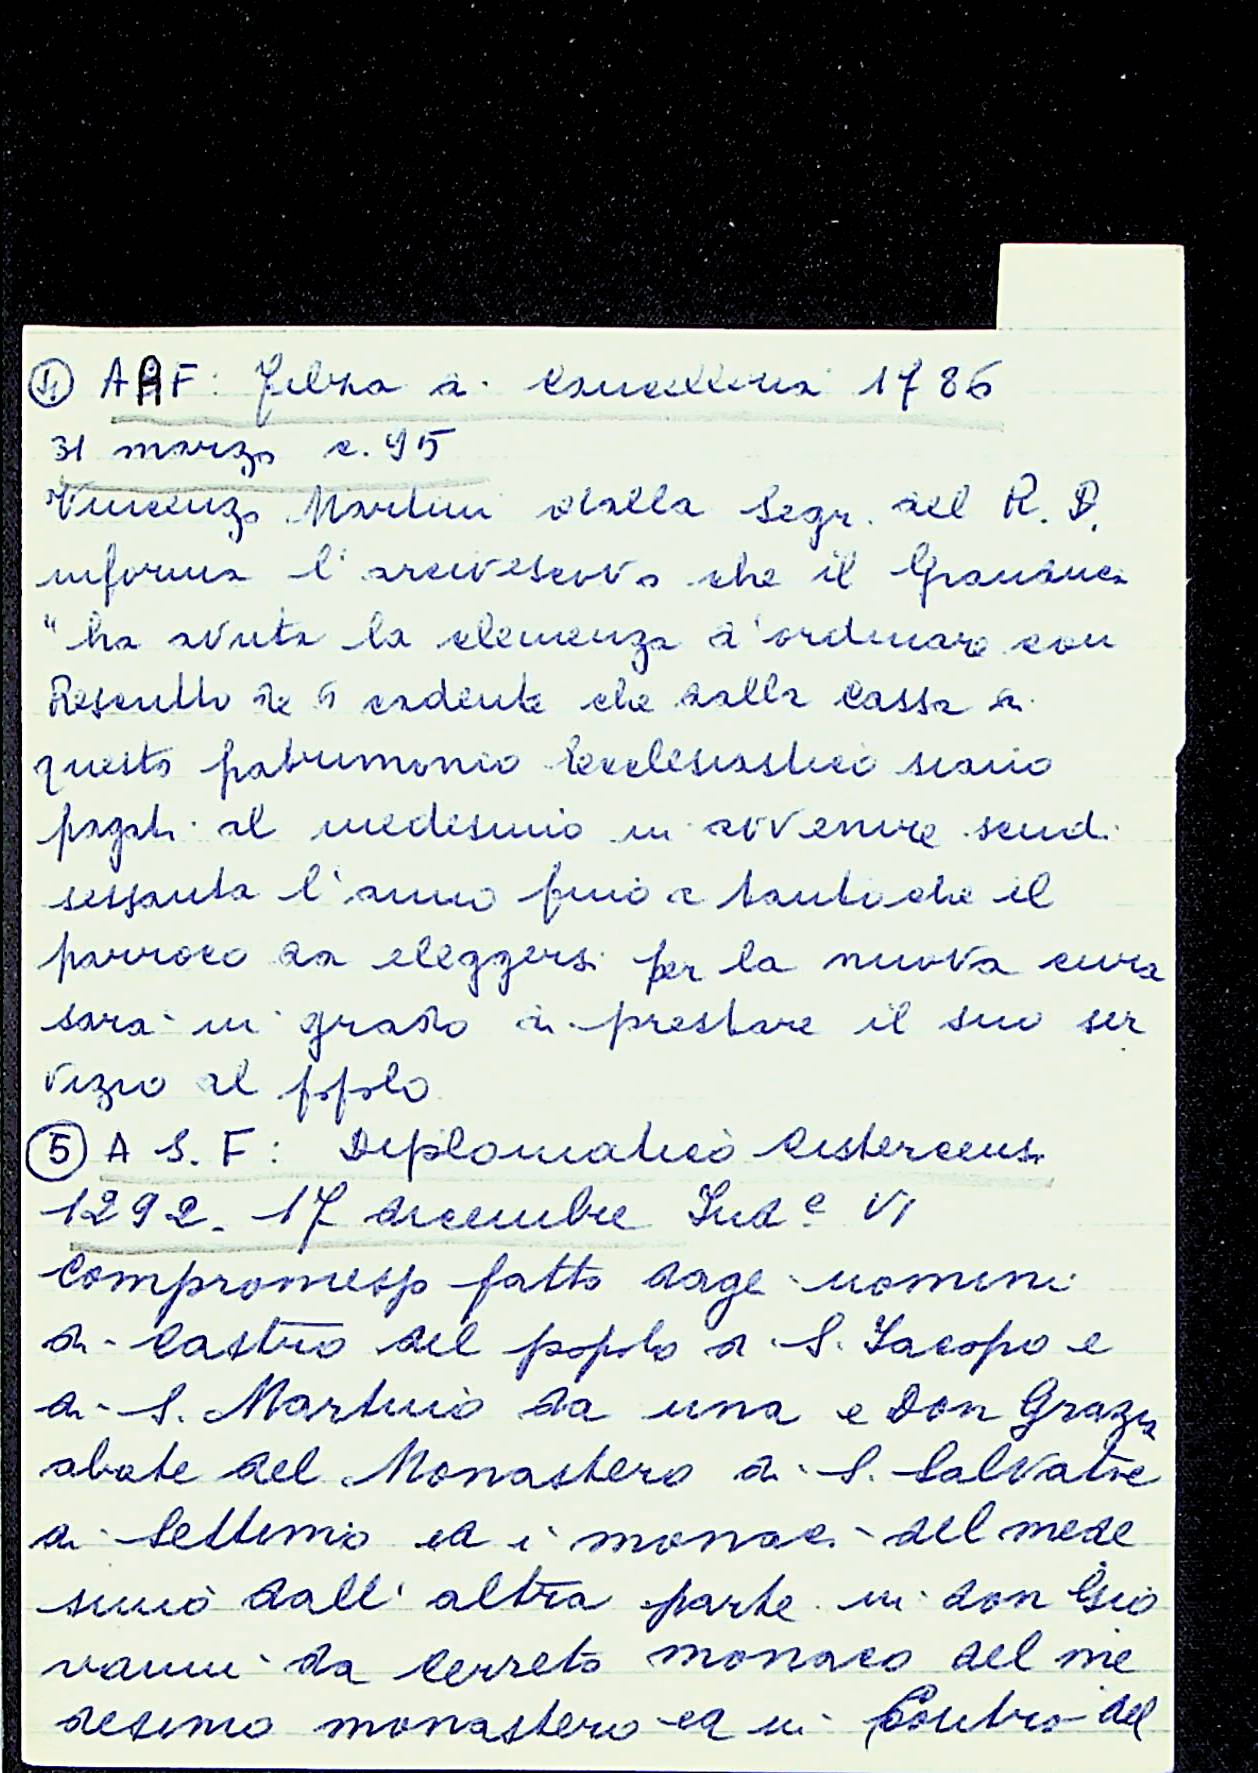 ④ AAF: Filza di Cancelleria 1786
31 marzo c. 95
Vincenzo Martini dalla Segr. del R. D.
informa l'arcivescovo che il Granduca
"ha avuta la clemenza d'ordinare con
Rescritto de 6 cadente che dalla Cassa di
questo patrimonio Ecclesiastico siano
pagati al medesimo in avvenire scudi
sessanta l'anno fino a tanto che il
parroco da eleggersi per la nuova cura
sarà in grado di prestare il suo ser
vizio al popolo
⑤ A S. F: Diplomatico Cistercensi
1292. 17 dicembre Ind.e VI
Compromesso fatto dagli uomini
di Castro del popolo di S. Iacopo e
di S. Martino da una e Don Grazia
abate del Monastero di S. Salvatore
di Settimo ed i monaci del mede
simo dall'altra parte in don Gio
vanni da Cerreto monaco del me
desimo monastero ed in del